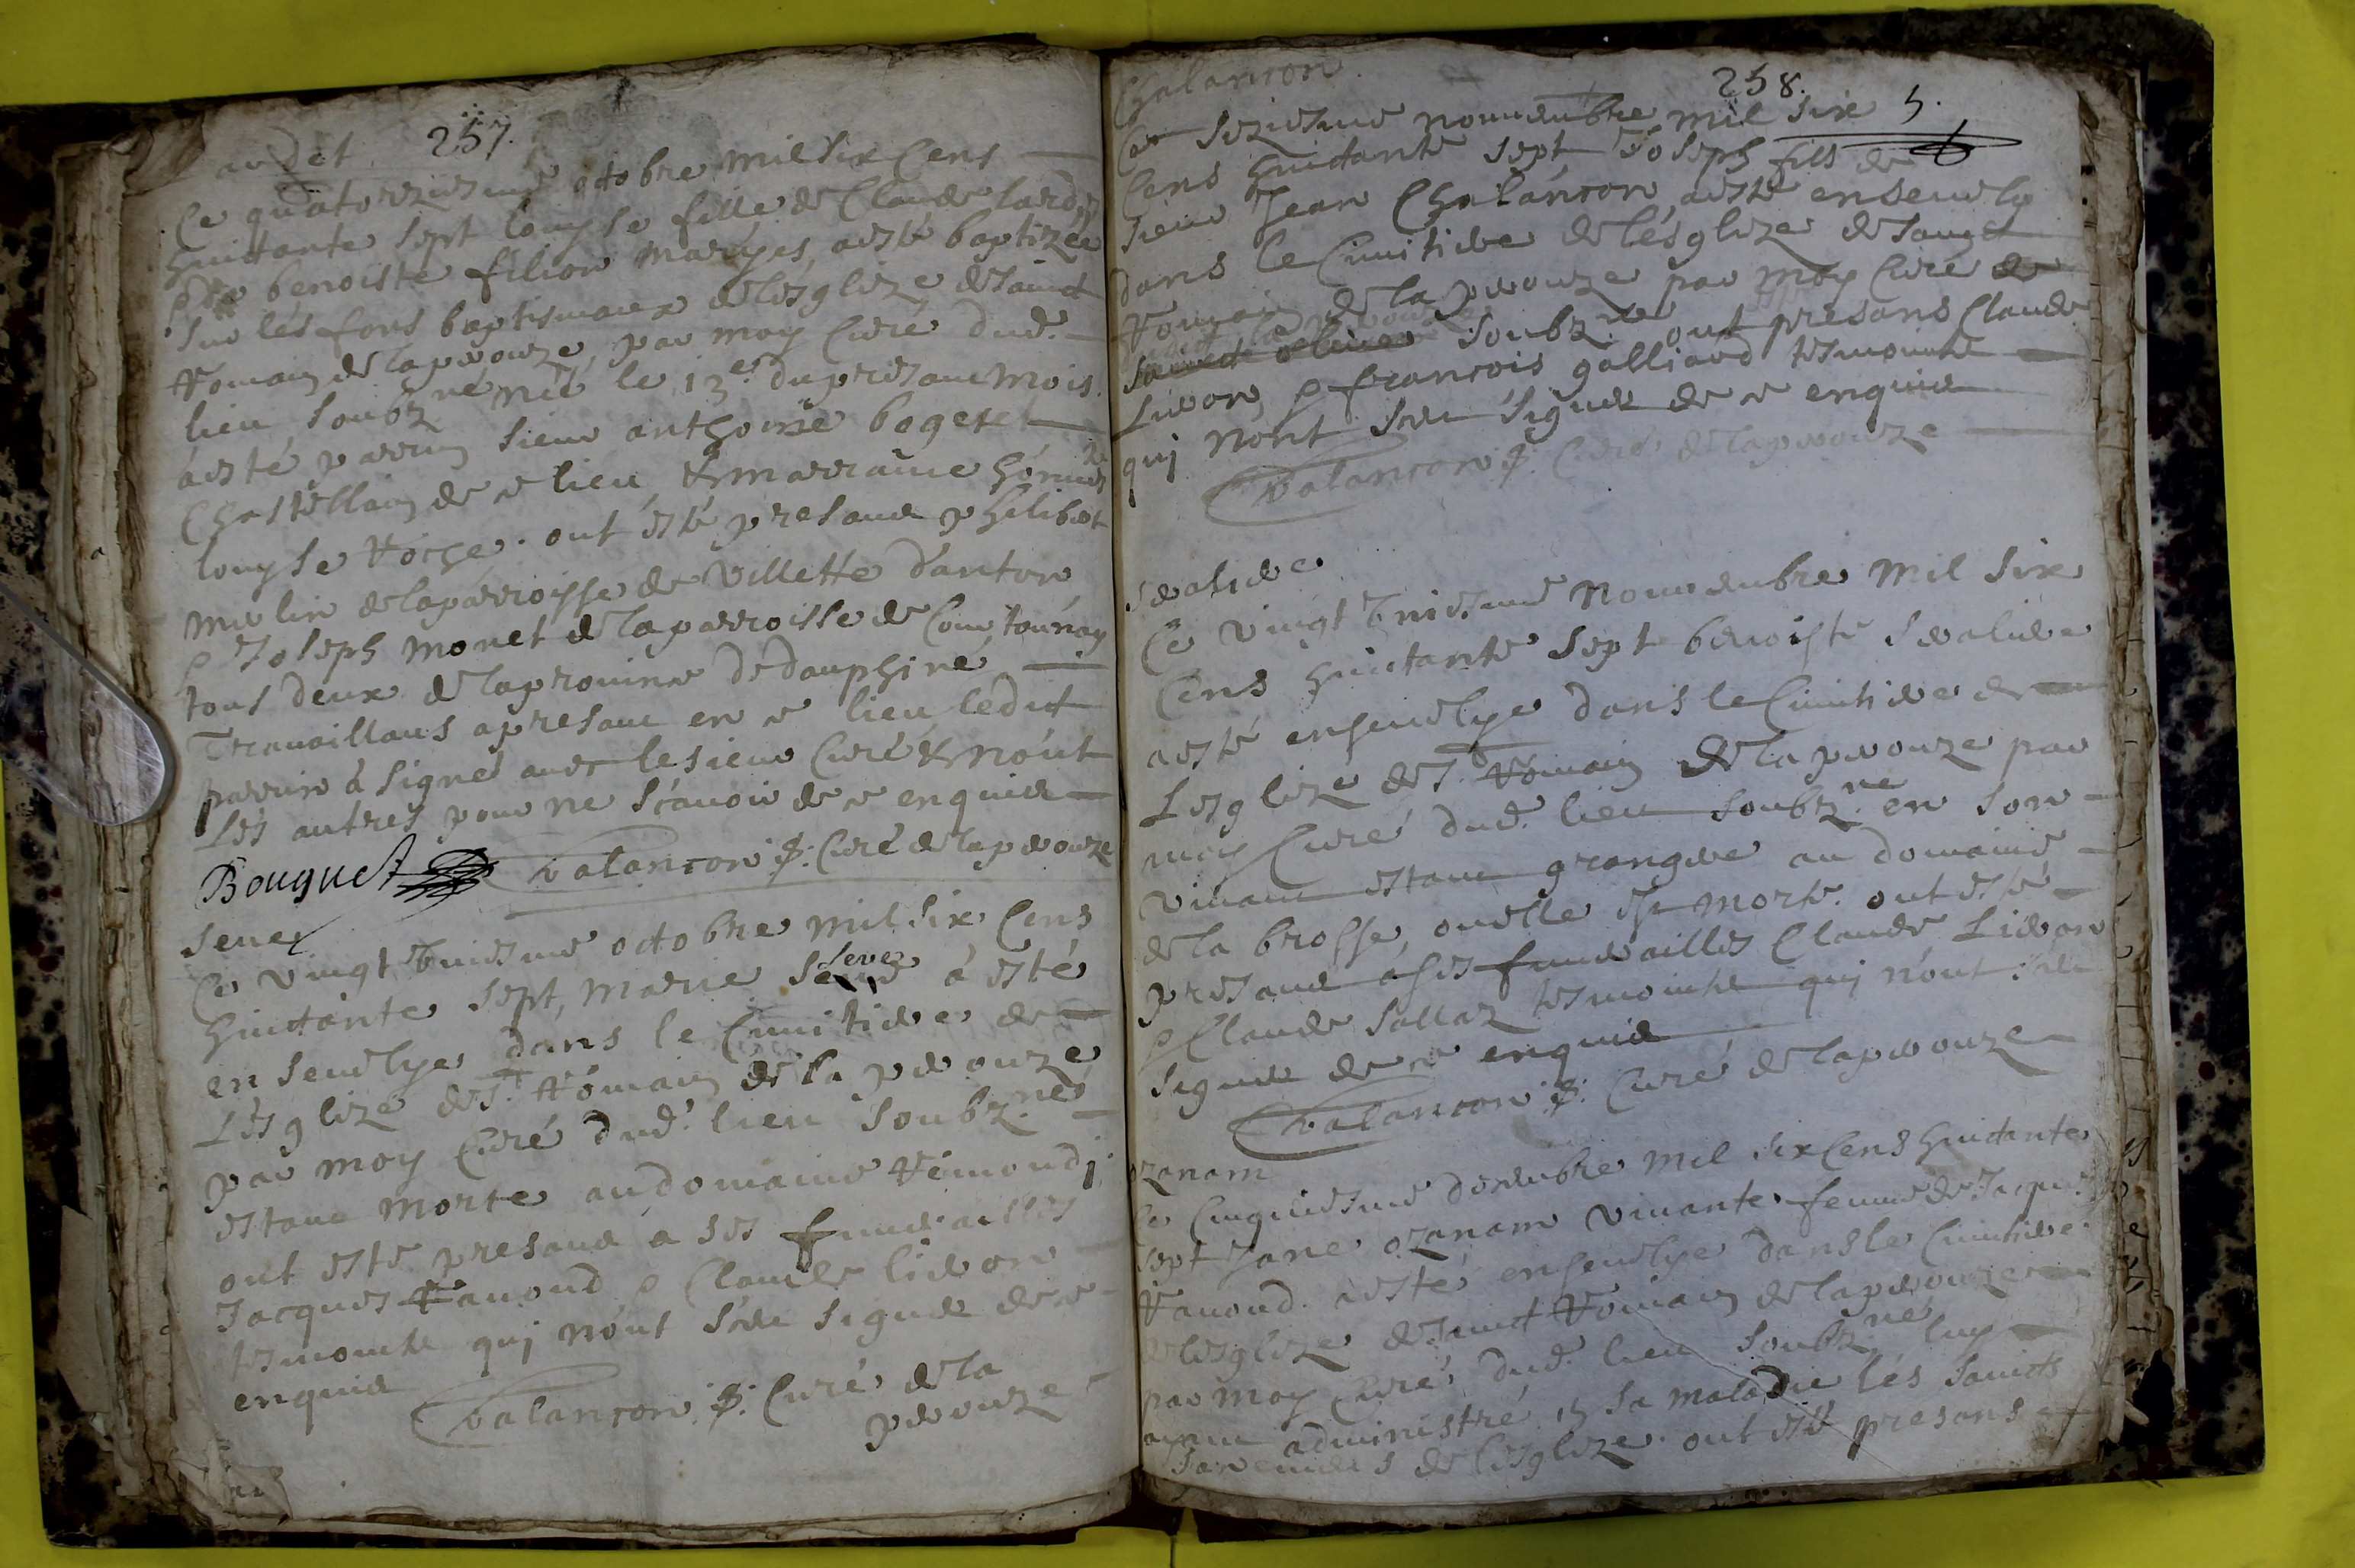 257.
Ce quatorziesme octobre mil six Cens
huittante sept louyse fille de Claude lardet
& benoiste filion mariyes, aesté baptizée
sur lés fons baptismaux de lésglize de sainct
Romain de laperouze, par moy Curé dud.
lieu soubz.né née le 13e du presant mois.
áesté parrin sieur anthoine
Chastellain de ce lieu & marraine
louyse Roche. ont esté presant philibert
merlin de laparroisse de Villette d'anton
& Joseph monet de laparroisse de
tous deux de laprovince de dauphiné
Travaillans apresant en ce lieu ledict
parrin á signé avec lesieur Curé & nont
Lés autres pour ne scavoir de ce enquis
Bouquet Valancon p: Curé de laperouze
Seve
Ce vingt huiesme octobre mil six Cens
huittante sept, marie seve á esté
ensevelye dans le Cimitiere de
Lésglize de St. Romain de la perouze
par moy Curé dud. lieu soubz.né
estant morte au domaine Rémond
ont esté presant a ses funerailles
Jacques Ravoud & Claude lievon
tesmoins qui nónt sceu signer de ce
enquis
Valancon p: Curé de la
perouze
Chalancon
258.
5.
Ce seziesme novembre mil six
Cens huittante sept Joseph fils de
sieur Jean Chalancon aesté ensevely
dans le Cimitiere de lésglize de sainct
Romain de la perouze par moy Curé de
soubz.né ont presans Claude
Lievon, & francois galliard tesmoins
qui nont sceu signer de ce enquis
Valancon p: Curé de laperouze
Ce vingt huiesme Novembre Mil six
Cens huittante sept benoiste
aesté ensevelye dans le Cimitiere de
Lésglize de St. Romain de la perouze par
moy Curé dud. lieu soubz.né en son
vivant estant grangere au domaine
de la brosse, ou elle est morte. ont esté
presant ases funerailles Claude Lievon
& Claude Sallaz tesmoins qui nónt sceu
signer de ce enquis
Valancon p: Curé de laperouze
ozanam
Ce Cinquiesme decembre mil six Cens huittante
sept Jane ozanam vivante femme de Jacques
Ravoud. aesté ensevelye dans le Cimitiere
de lésglize de sainct Romain de laperouze
par moy Curé dud. lieu soubz.né luy
ayant administré en sa maladie lés saincts
sacremens de lésglize. ont esté presans